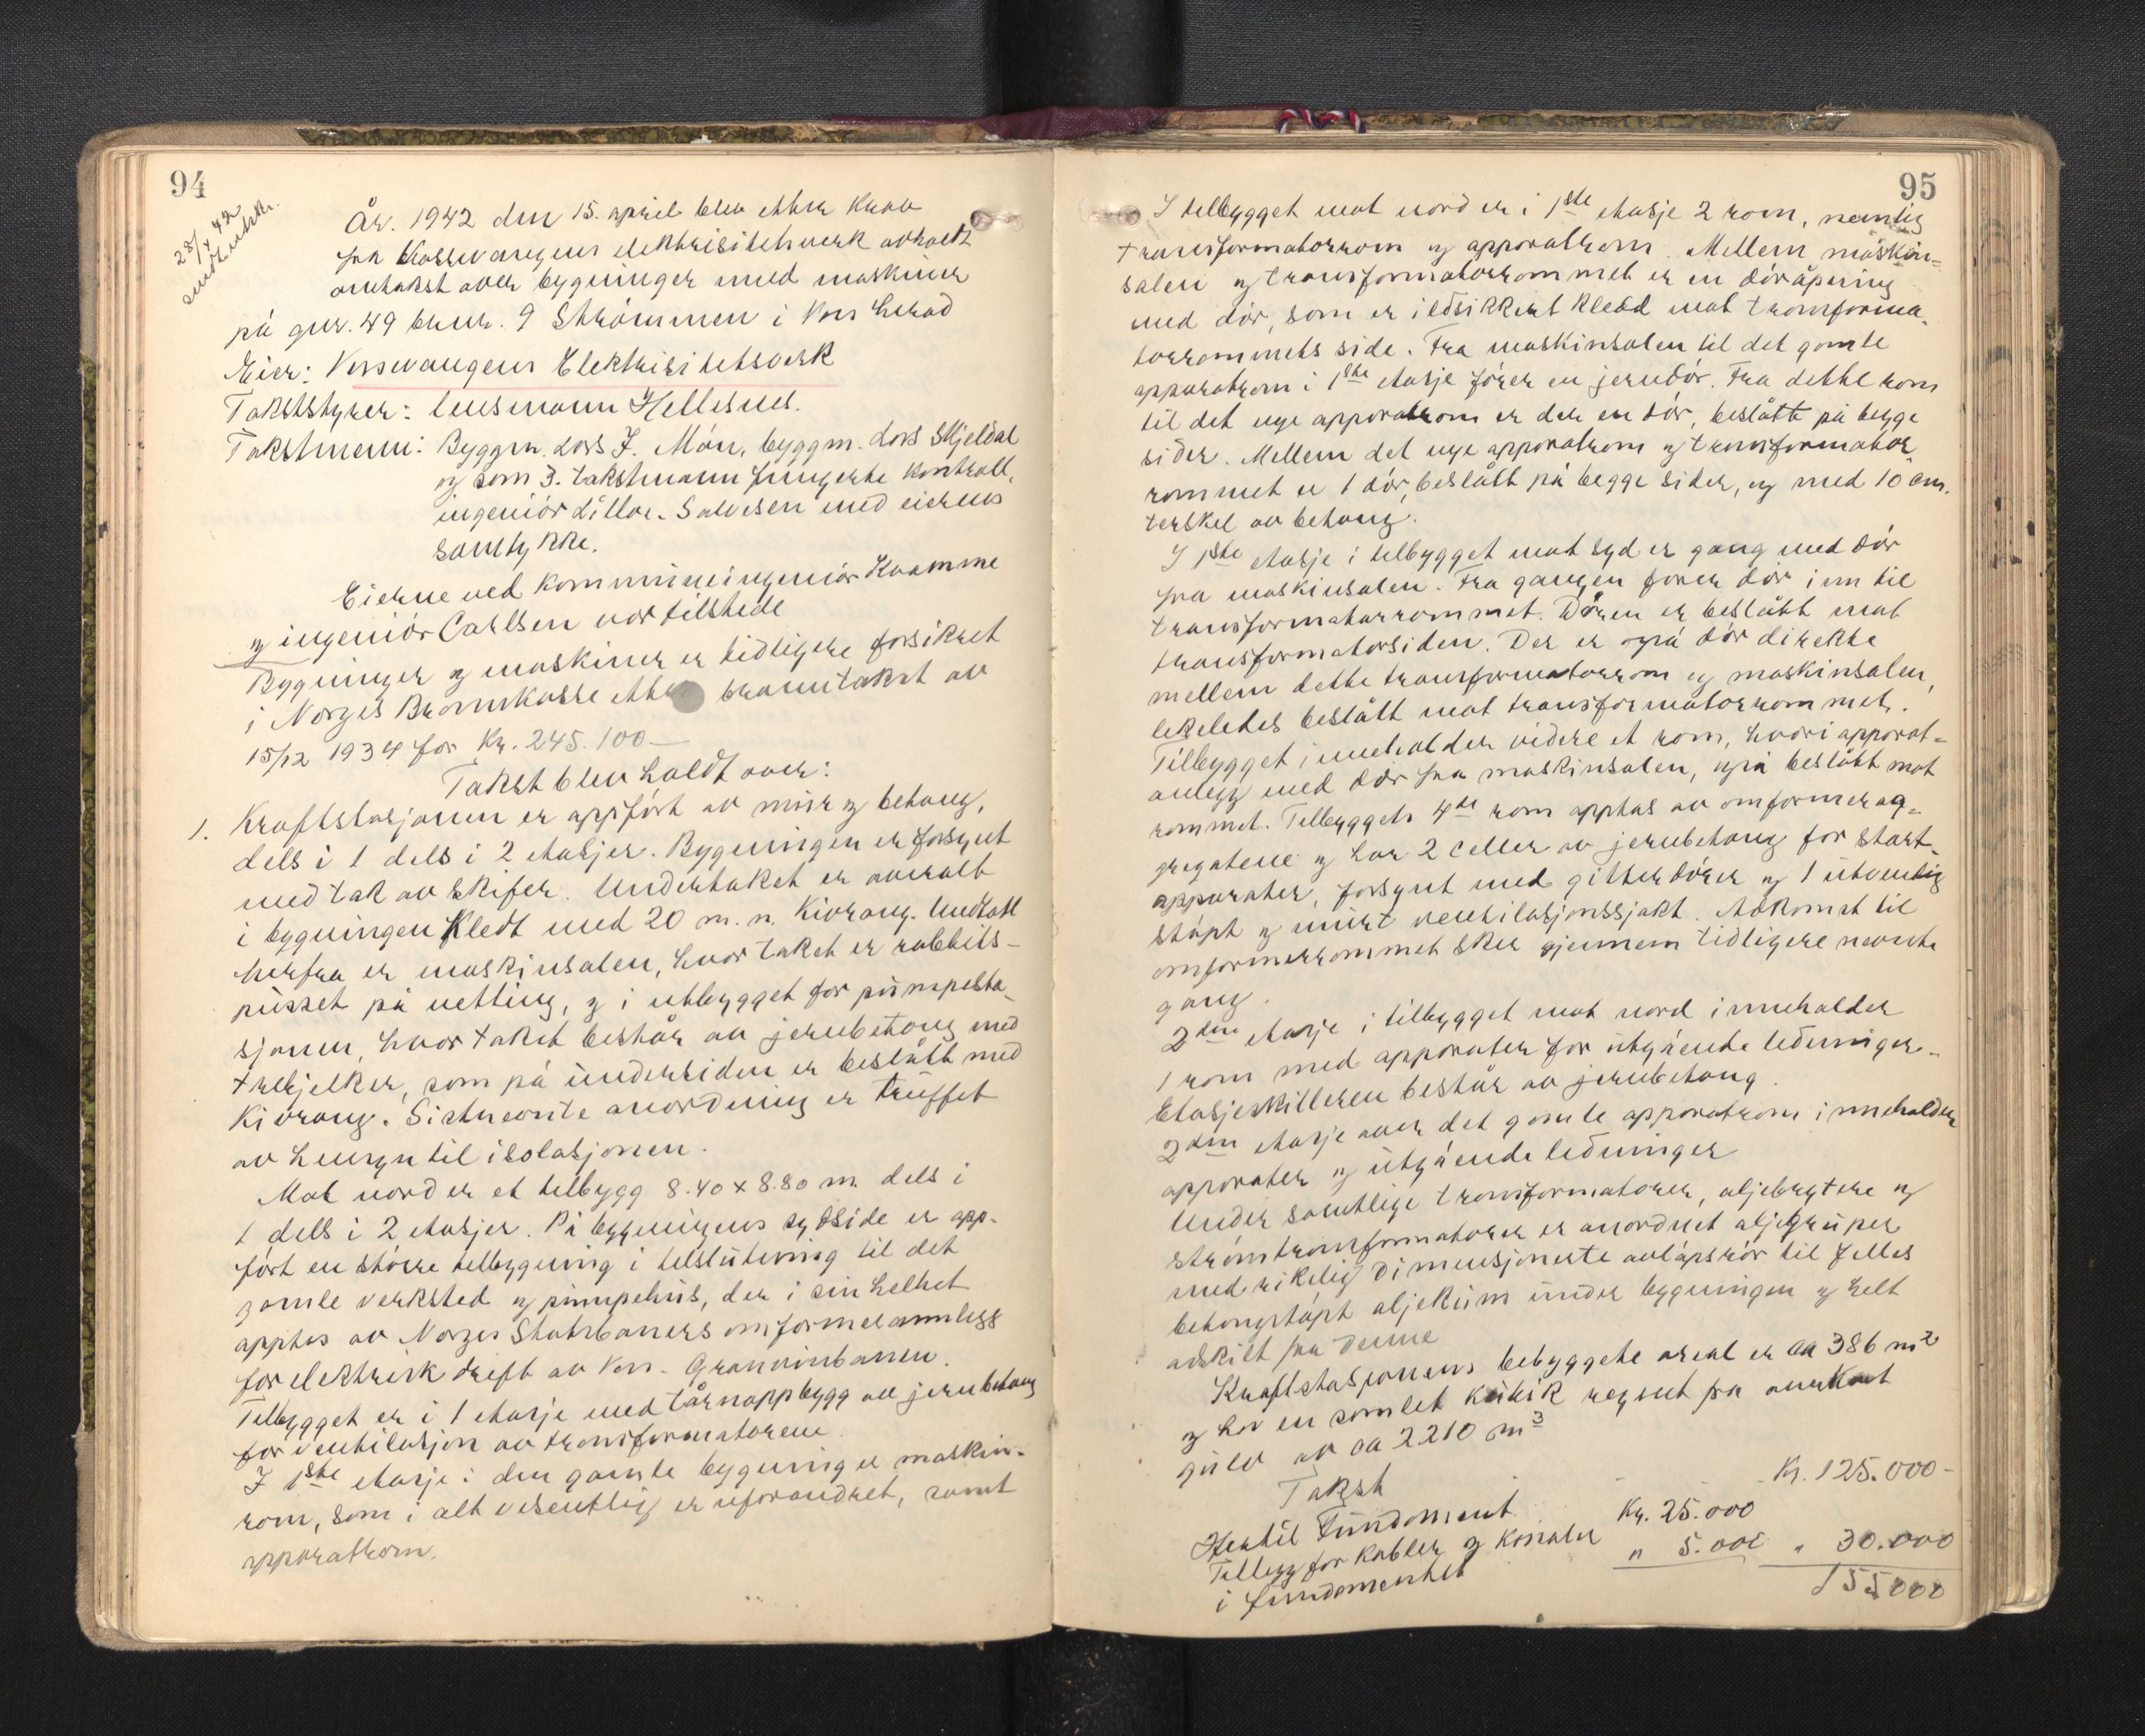 94
28/4 42
sendt utskr.
År. 1942 den 15. april blev etter krav
fra Vossevangens elektrisitetsverk avholdt
omtakst over bygninger med maskiner
på gnr. 49 bruk. 9 Strømmen i Voss herad
Eier: Vossevangens Elektrisitetsverk
Takststyrer: lensmann Hellesnes.
Takstmenn: Byggm. Lars J. Møn, byggm. Lars Skjeldal
og som 3. takstmann fungerte kontroll-
ingeniør Salvesen med eierens
samtykke.
Eierne ved kommuneingeniør Kvamme
og ingeniør Carlsen var tilstede
Bygninger og maskiner er tidligere forsikret
i Norges Brannkasse etter branntakst av
15/12 1934 for Kr. 245.100—
Takst blev holdt over:
1. Kraftstasjonen er oppført av mur og betong,
dels i 1 dels i 2 etasjer. Bygningen er forsynt
med tak av skifer. Undertaket er overalt
i bygningen kledt med 20 m.m. Kivrang. Undtatt
herfra er maskinsalen, hvor taket er rabbits-
pusset på netting, og i utbygget for pumpesta-
sjonen, hvor taket består av jernbetong med
trebjelker, som på undersiden er beslått med
Kivrang. Sistnevnte anordning er truffet
av hensyn til isolasjonen.
Mot nord er et tilbygg 8.40 x 8.80 m. dels i
1 dels i 2 etasjer. På bygningens sydside er opp-
ført en større tilbygning i tilslutning til det
gamle verksted og pumpehus, der i sin helhet
opptas av Norges Statsbaners omformeranlegg
for elektrisk drift av Voss-Granvinbanen.
Tilbygget er i 1 etasje med tårnoppbygg av jernbetong
for ventilasjon av transformatorene.
I 1ste etasje i den gamle bygning er maskin-
rom, som i alt vesentlig er uforandret, samt
apparatrom.
95
I tilbygget mot nord er i 1ste etasje 2 rom, nemlig
transformatorrom og apparatrom. Mellem maskin-
salen og transformatorrommet er en døråpning
med dør, som er ildsikkert kledd mot transforma-
torrommets side. Fra maskinsalen til det gamle
apparatrom i 1ste etasje fører en jerndør. Fra dette rom
til det nye apparatrom er der en dør, beslått på begge
sider. Mellem det nye apparatrom og transformator-
rommet er 1 dør, beslått på begge sider, og med 10 cm.
terskel av betong.
I 1ste etasje i tilbygget mot syd er gang med dør
fra maskinsalen. Fra gangen fører dør inn til
transformatorrommet. Døren er beslått mot
transformatorsiden. Der er også dør direkte
mellem dette transformatorrom og maskinsalen,
likeledes beslått mot transformatorrommet.
Tilbygget inneholder videre et rom, hvori apparat-
anlegg med dør fra maskinsalen, også beslått mot
rommet. Tilbyggets 4de rom opptas av omformerag-
gregatene og har 2 celler av jernbetong for start-
apparater, forsynt med gitterdører og 1 utvendig
støpt og murt ventilasjonssjakt. Adkomst til
omformerrommet skjer gjennem tidligere nevnte
gang.
2den etasje i tilbygget mot nord inneholder
1 rom med apparater for utgående ledninger.-
Etasjeskilleren består av jernbetong.
2den etasje over det gamle apparatrom inneholder
apparater og utgående ledninger
Under samtlige transformatorer, oljebrytere og
strømtransformatorer er anordnet oljegruper
med rikelig dimensjonerte avløpsrør til felles
betongstøpt oljekum under bygningen og helt
adskilt fra denne
Kraftstasjonens bebyggete areal er ca 386 m2
og har en samlet kubik regnet fra overkant
gulv av ca 2210 m3
Takst Kr. 125.000-
Hertil Fundament Kr. 25.000
Tillegg for kabler og kanaler
i fundamentet " 5.000 " 30.000
155000